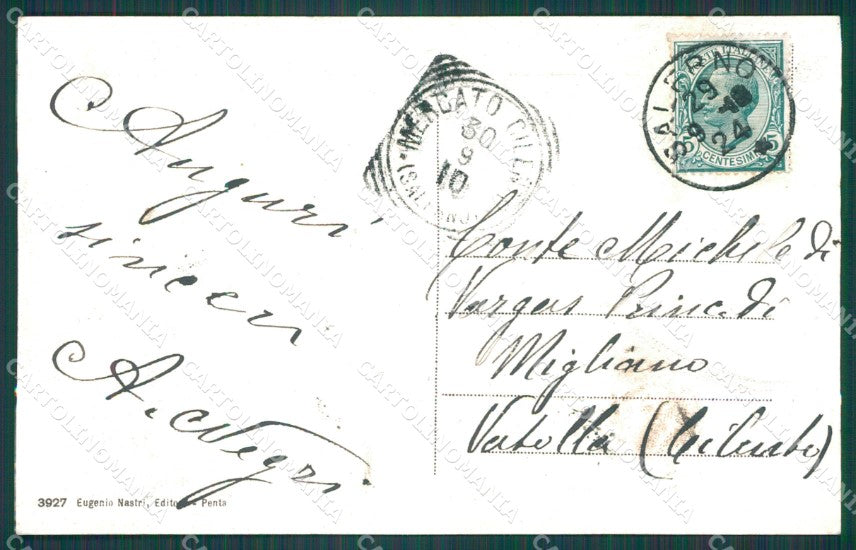 Auguri
sinceri
A. Negri
MERCATO CILENTO
30
9
10
SALERNO
29 9 10
24
CENTESIMI 5
Conte Michele di
Vargas Princ. di
Migliano
Vatolla (Cilento)
3927 Eugenio Nastri, Editore - Penta
CARTOLINOMANIA